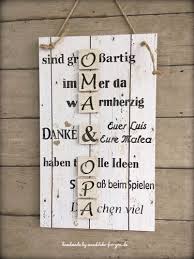 sind grOßartig
imMer da
wArmherzig
DANKE & Euer Luis
Eure Malea
haben tOlle Ideen
SPaß beim Spielen
lAchen viel
handmade by